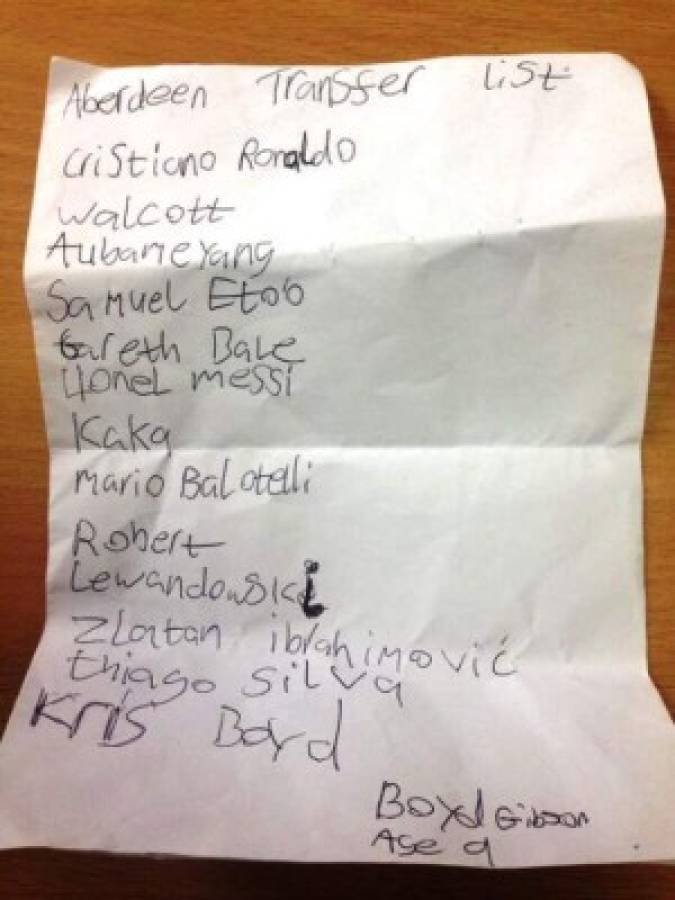 Aberdeen Transfer list
Cristiano Ronaldo
Walcott
Aubameyang
Samuel Etoo
Gareth Bale
Lionel messi
Kaka
Mario Balotelli
Robert
Lewandowski
Zlatan ibrahimović
thiago Silva
Kris Boyd
Boyd Gibson
Age 9